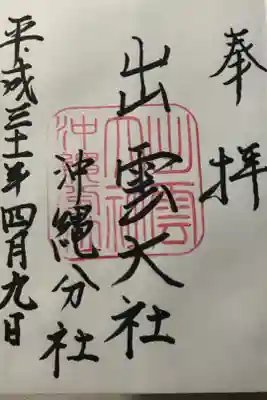 奉拝
出雲大社
沖縄分社
平成三十一年四月九日